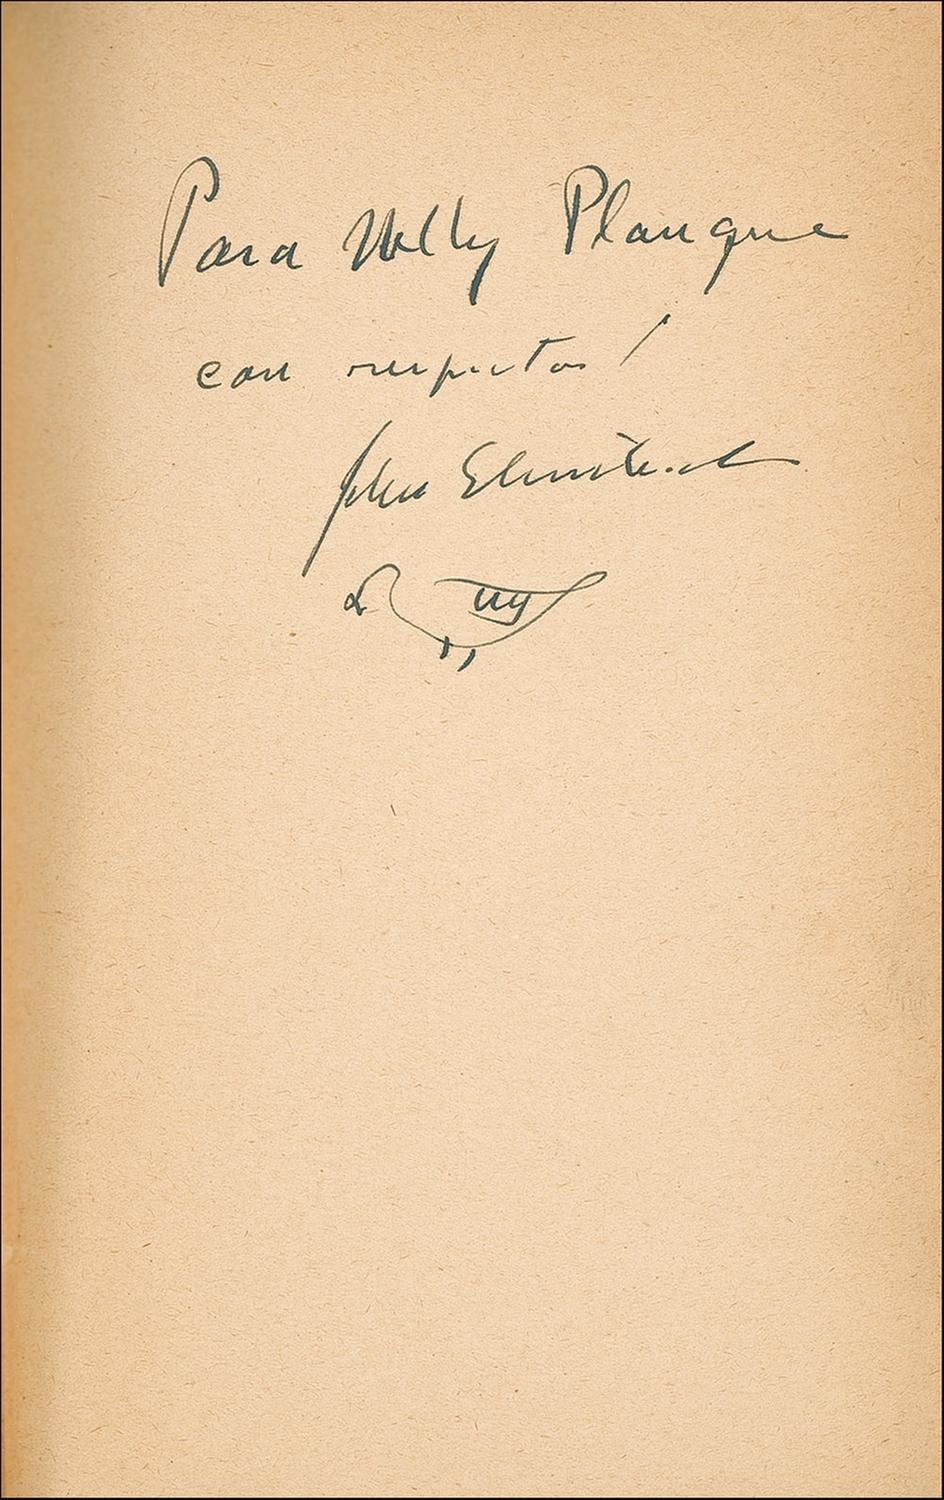 Para Nelly Planque
con respetos /
John Steinbeck